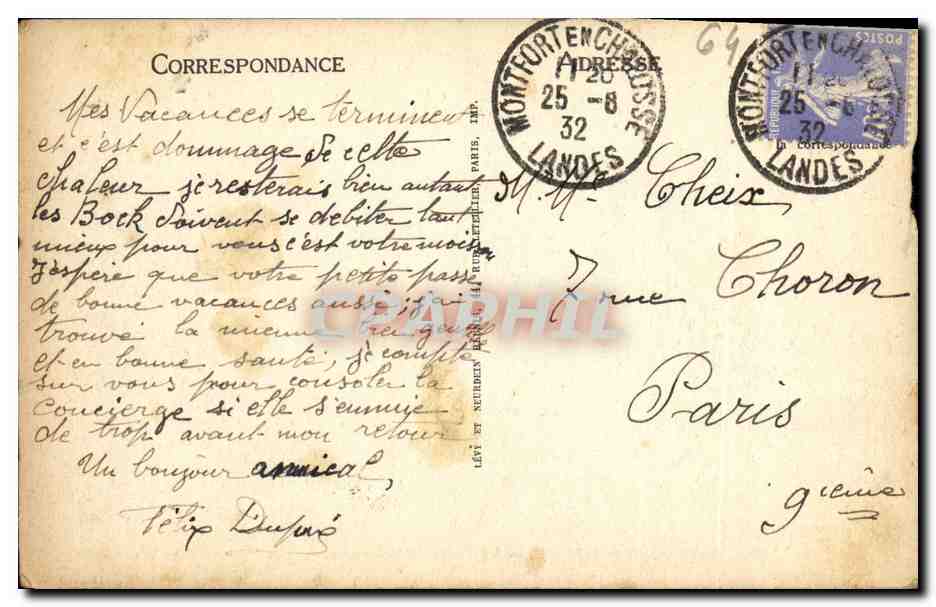 CORRESPONDANCE
ADRESSE
Mes Vacances se terminent
et c'est dommage de cette
chaleur je resterais bien autant
les Bock doivent se debiter tant
mieux pour vous c'est votre mois
J'espère que votre petite passe
de bonne vacances aussi, j'ai
trouvé la mienne
et en bonne santé, je compte
sur vous pour consoler la
concierge si elle s'ennuie
de trop avant mon retour
Un bonjour amical,
Félix Dupré
LÉVY ET NEURDEIN RÉUNIS, 44, RUE LETELLIER, PARIS, IMP.
MONTFORT EN CHALOSSE
11 20
25 -8
32
LANDES
MONTFORT EN CHALOSSE
11 20
25 -8
32
LANDES
64
POSTES
la correspondance
M. Mme Cheix
7 rue Choron
Paris
9ième
CPARPHIL